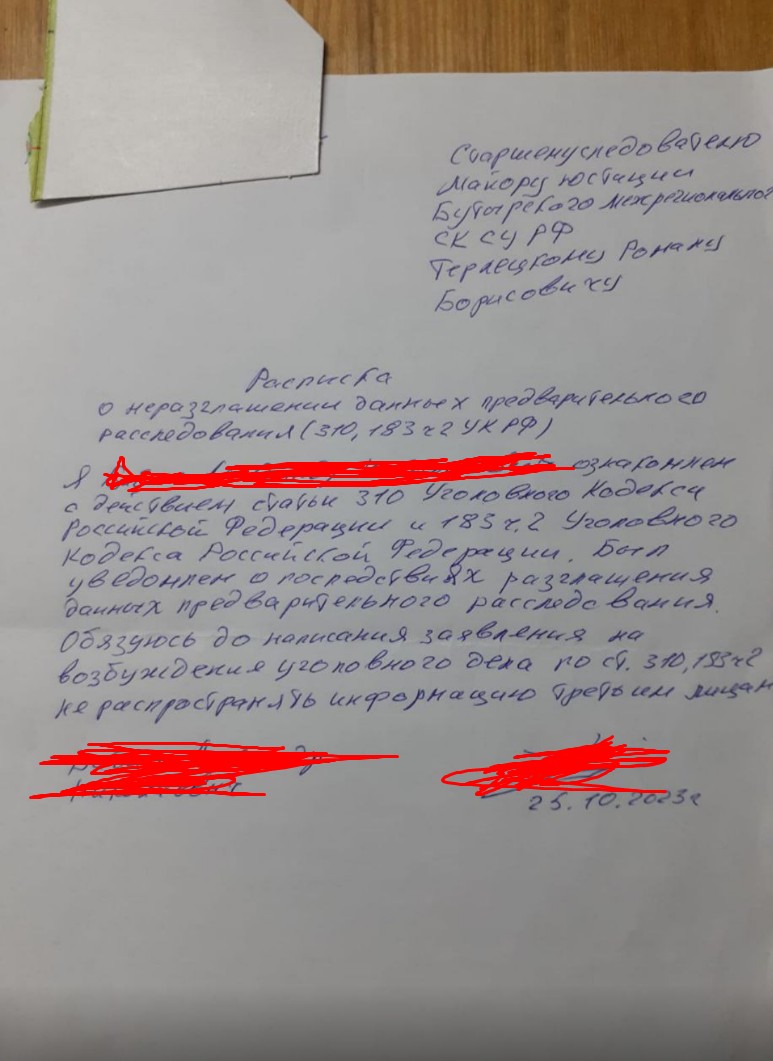 Старшему следователю
Майору юстации
Бутырского межрегионального
СК СУ РФ
Терлецкому Роману
Борисовичу
Расписка
о неразглашении данных предварительного
расследования (310, 183 ч 2 УК РФ)
Я ознакомлен
с действием статьи 310 Уголовного Кодекса
Российской Федерации и 183 ч. 2 Уголовного
Кодекса Российской Федерации. Был
уведомлен о последствиях разглашения
данных предварительного расследования.
Обязуюсь до написания заявления на
возбуждения уголовного дела по ст. 310, 183 ч 2
не распространять информацию третьим лицам
25.10.2023г